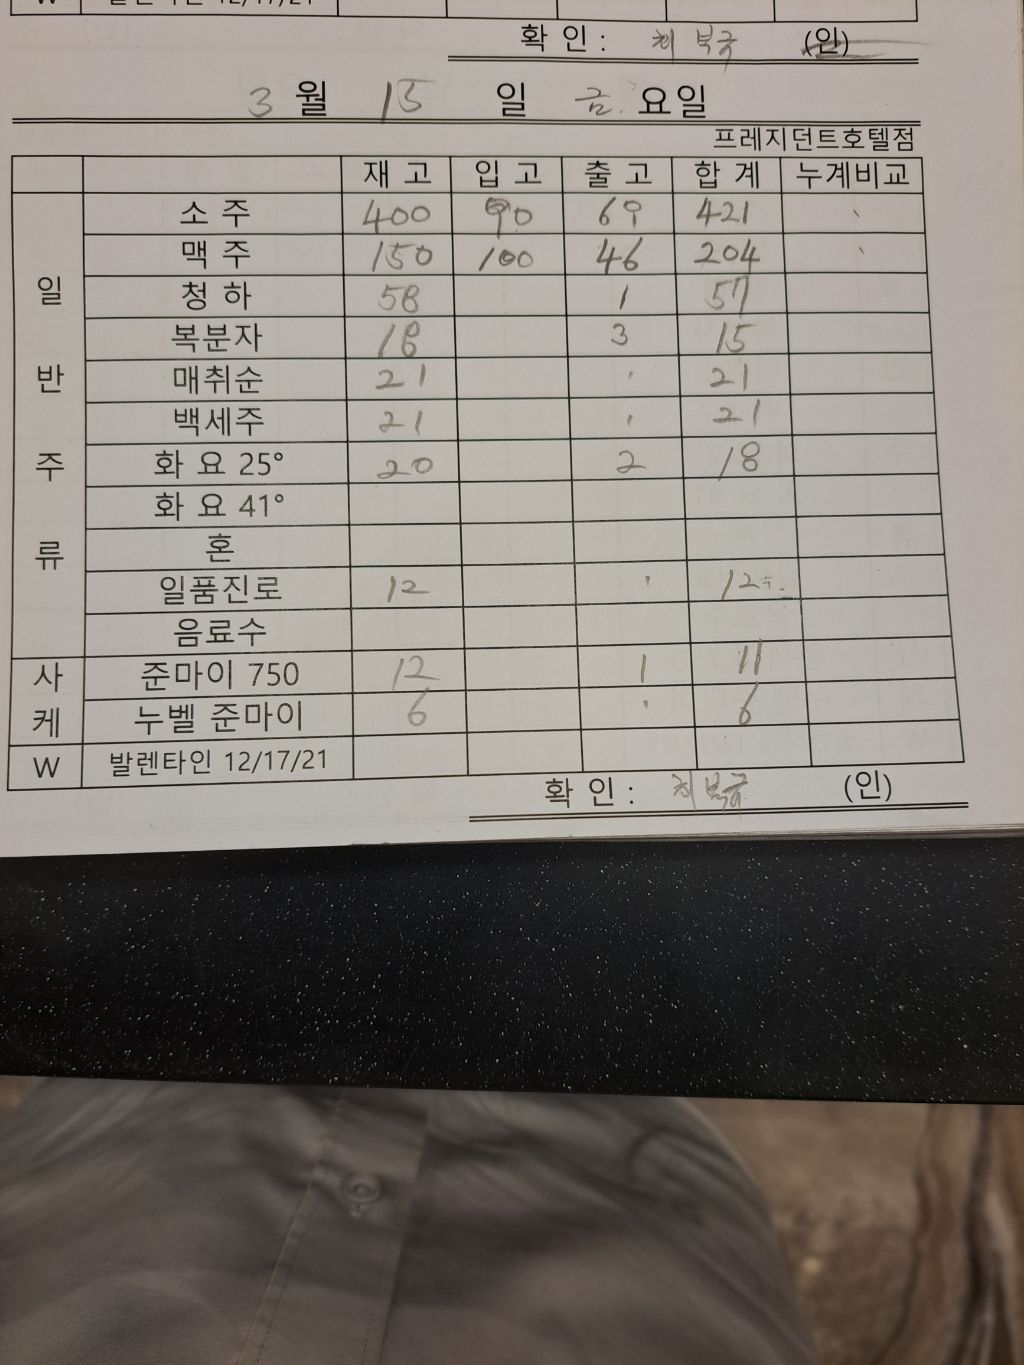 W 발렌타인 12/17/21
확 인 : (인)
3 월 15 일 금. 요일
프레지던트호텔점
재 고 입 고 출 고 합 계 누계비교
일반주류
소 주 400 90 69 421
맥 주 150 100 46 204
청 하 58 1 57
복분자 18 3 15
매취순 21 21
백세주 21 21
화 요 25° 20 2 18
화 요 41°
혼
일품진로 12 12
음료수
사케
준마이 750 12 1 11
누벨 준마이 6 6
W 발렌타인 12/17/21
확 인 : (인)